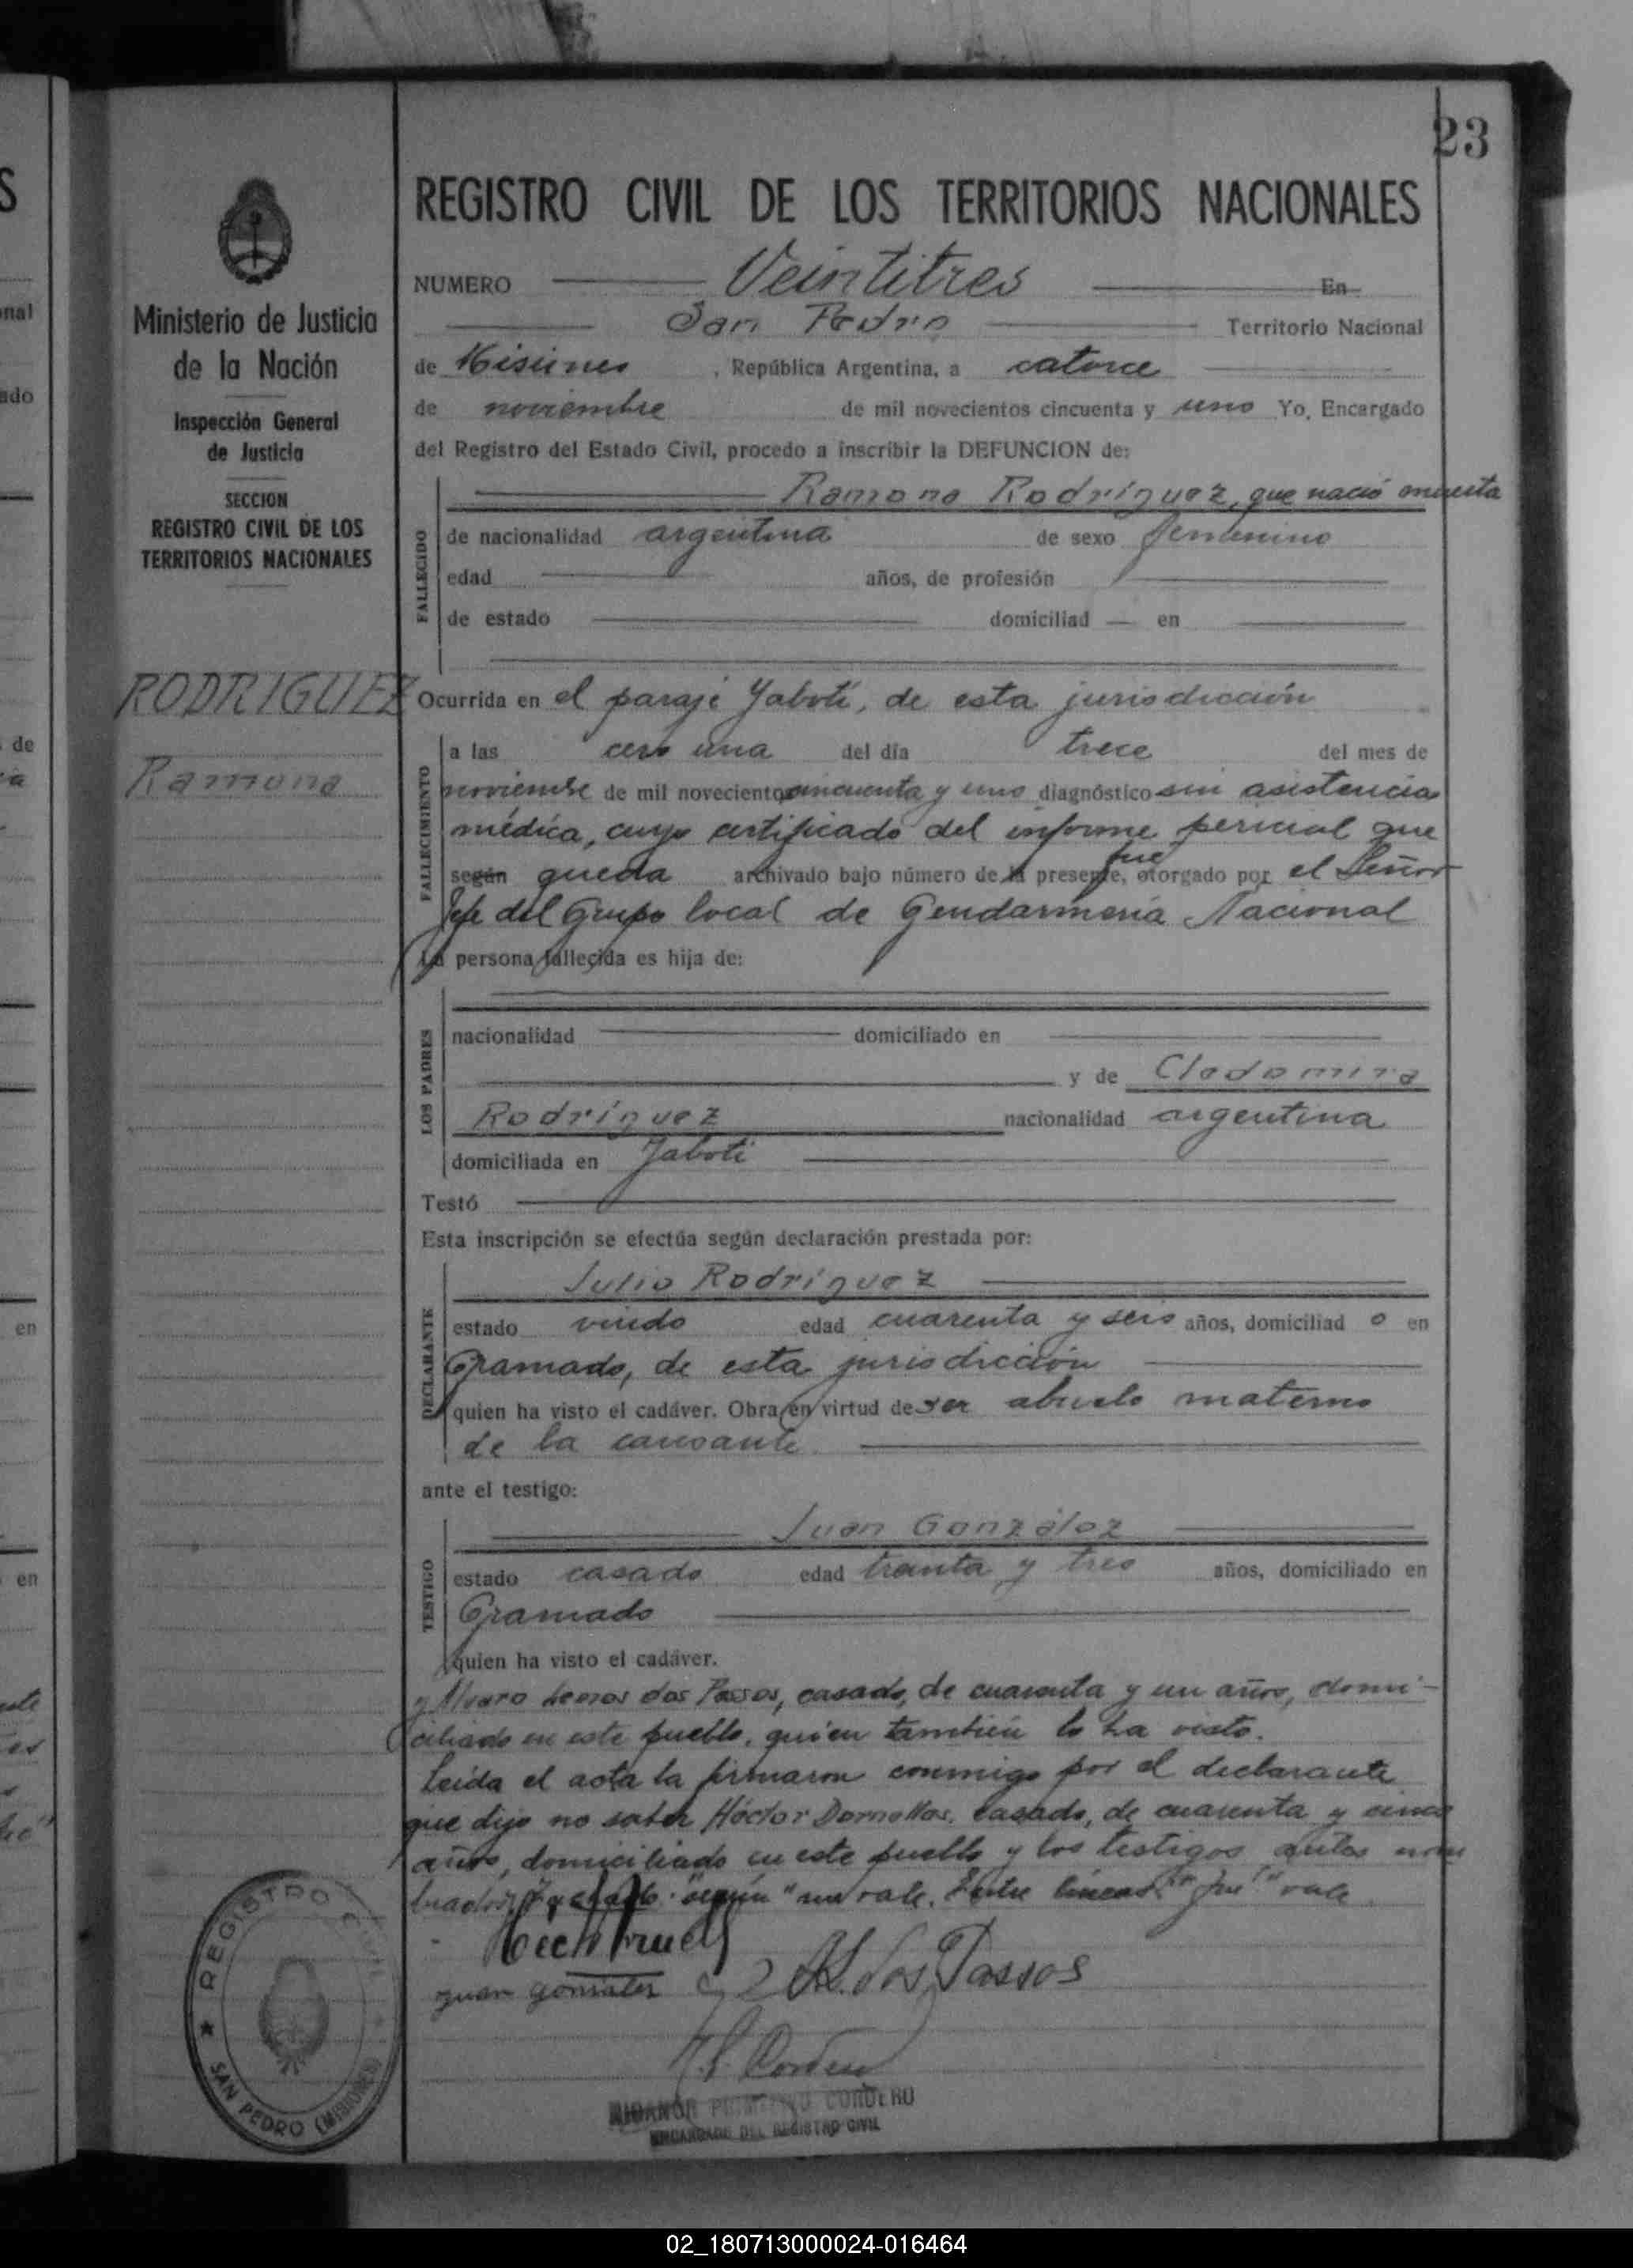 23
REGISTRO CIVIL DE LOS TERRITORIOS NACIONALES
NUMERO Veintitres En
San Pedro Territorio Nacional
de Misiones, República Argentina, a catorce
de noviembre de mil novecientos cincuenta y uno Yo, Encargado
del Registro del Estado Civil, procedo a inscribir la DEFUNCION de:
Ministerio de Justicia
de la Nación
Inspección General
de Justicia
SECCION
REGISTRO CIVIL DE LOS
TERRITORIOS NACIONALES
RODRIGUEZ
Ramona
FALLECIDO
Ramona Rodríguez, que nació muerta
de nacionalidad argentina de sexo femenino
edad años, de profesión
de estado domiciliad en
Ocurrida en el paraje Yabotí, de esta jurisdicción
FALLECIMIENTO
a las cero una del día trece del mes de
noviembre de mil novecientos cincuenta y uno diagnóstico sin asistencia
médica, cuyo certificado del informe pericial que
según queda archivado bajo número de la presente, fue otorgado por el Señor
Jefe del Grupo local de Gendarmería Nacional
La persona fallecida es hija de:
LOS PADRES
nacionalidad domiciliado en
y de Clodomira
Rodríguez nacionalidad argentina
domiciliada en Yabotí
Testó
Esta inscripción se efectúa según declaración prestada por:
DECLARANTE
Julio Rodríguez
estado viudo edad cuarenta y seis años, domiciliad o en
Gramado, de esta jurisdicción
quien ha visto el cadáver. Obra en virtud de ser abuelo materno
de la causante
ante el testigo:
TESTIGO
Juan González
estado casado edad treinta y tres años, domiciliado en
Gramado
quien ha visto el cadáver.
y Alvaro Lemos dos Passos, casado, de cuarenta y un años, domi-
ciliado en este pueblo, quien también lo ha visto.
Leída el acta la firmaron conmigo por el declarante
que dijo no saber Héctor casado, de cuarenta y cinco
años, domiciliado en este pueblo y los testigos antes nom
brados. "según" no vale. Entre líneas "fue" vale
Juan Gonzalez
dos Passos
CORDERO
ENCARGADO DEL REGISTRO CIVIL
REGISTRO CIVIL
SAN PEDRO (MISIONES)
02_180713000024-016464